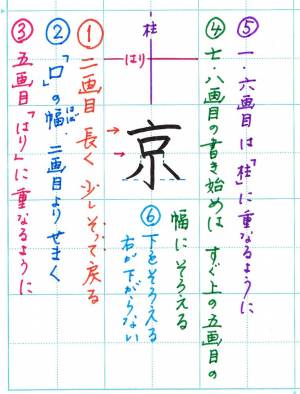 柱
はり
京
① 二画目 長く 少しそって戻る
② 「口」の幅 二画目よりせまく
はば
③ 五画目「はり」に重なるように
④ 七・八画目の書き始めは すぐ上の五画目の
幅にそろえる
⑤ 一・六画目は「柱」に重なるように
⑥ 下をそろえる
右が下がらない